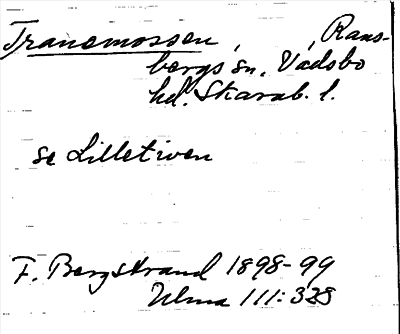 Tranemossen, Rans-
bergs sn, Vadsbo
hd. Skarab. l.
se Lilletiven
F. Bergstrand 1898-99
Ulma 111:328